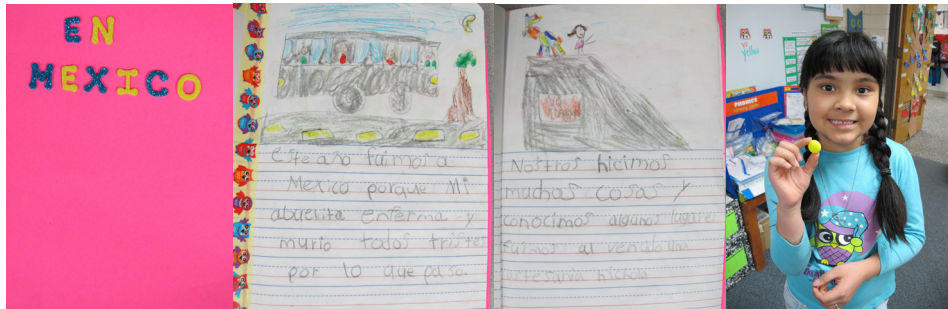 EN
MEXICO
Este año fuimos a
Mexico porque Mi
abuelita enferma y
murio todos tristes
por lo que paso.
Nostros hicimos
muchas cosas y
conocimos algunos lugares
fuimos al
artesania
yellow
PHONICS